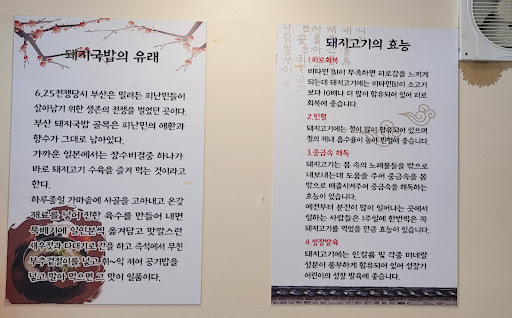 돼지국밥의 유래
6,25전쟁당시 부산은 밀려든 피난민들이
살아남기 위한 생존의 전쟁을 벌였던 곳이다.
부산 돼지국밥 골목은 피난민의 애환과
향수가 그대로 남아있다.
가까운 일본에서는 장수비결중 하나가
바로 돼지고기 수육을 즐겨 먹는 것이라고
한다.
하루종일 가마솥에 사골을 고아내고 온갖
재료를 넣어 진한 육수를 만들어 내면
뚝배기에 일인분씩 옮겨담고 맛깔스런
새우젓과 다대기로 간을 하고 즉석에서 무친
부추겉절이를 넣고 휘~익 저어 공기밥을
넣고 말아 먹으면 그 맛이 일품이다.
돼지고기의 효능
1.피로회복
비타민 B1이 부족하면 피로감을 느끼게
되는데 돼지고기에는 비타민B1이 소고기
보다 10배나 더 많이 함유되어 있어 피로
회복에 좋습니다.
2.빈혈
돼지고기에는 철이 많이 함유되어 있으며
철의 체내 흡수율이 높아 빈혈에 좋습니다.
3.중금속 해독
돼지고기는 몸 속의 노폐물들을 밖으로
내보내는데 도움을 주어 중금속을 몸
밖으로 배출시켜주어 중금속을 해독하는
효능이 있습니다.
예전부터 분진이 많이 일어나는 곳에서
일하는 사람들은 1주일에 한번씩은 꼭
돼지고기를 먹었을 만큼 효능이 있습니다.
4.성장발육
돼지고기에는 인,칼륨 및 각종 미네랄
성분이 풍부하게 함유되어 있어 성장기
어린이의 성장 발육에 좋습니다.